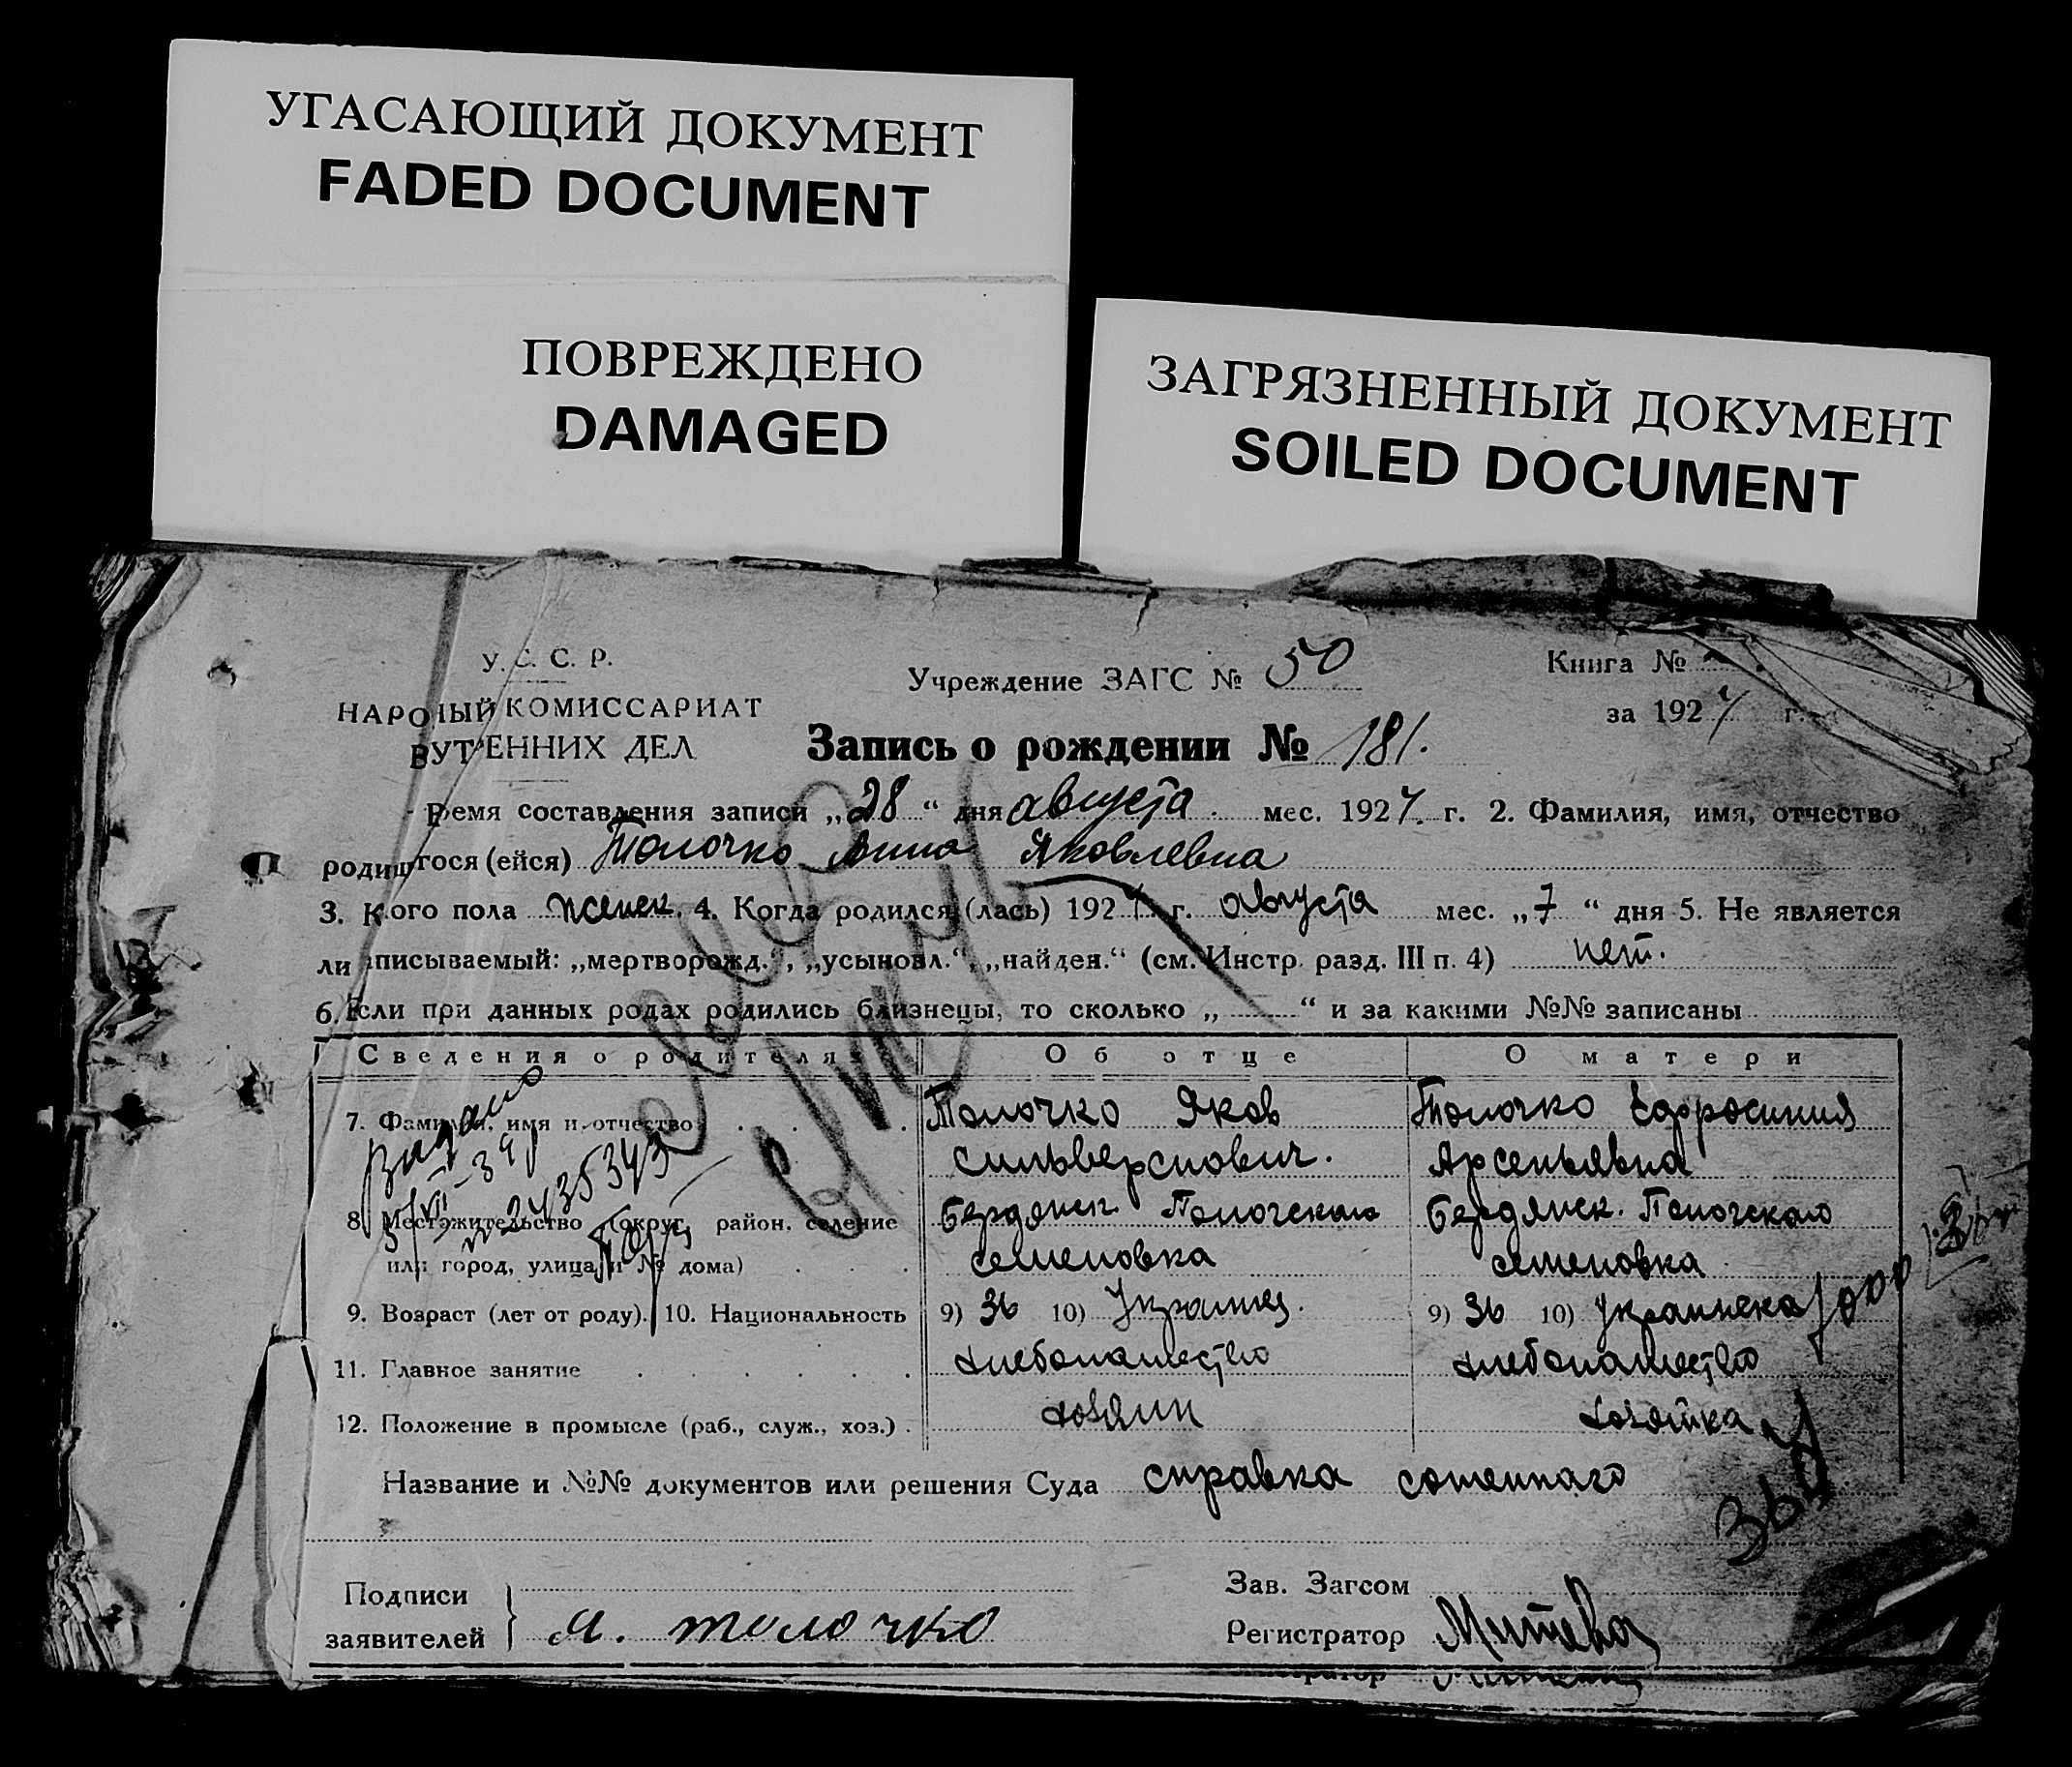 УГАСАЮЩИЙ ДОКУМЕНТ
FADED DOCUMENT
ПОВРЕЖДЕНО
DAMAGED
ЗАГРЯЗНЕННЫЙ ДОКУМЕНТ
SOILED DOCUMENT
У. С. С. Р.
НАРОДНЫЙ КОМИССАРИАТ
ВУТРЕННИХ ДЕЛ
Учреждение ЗАГС № 50
Книга №
за 1927 г.
Запись о рождении № 181.
Время составления записи „28“ дня августа мес. 1927 г. 2. Фамилия, имя, отчество
родившегося (ейся) Толочко Анна Яковлевна
3. Кого пола женск. 4. Когда родился (лась) 1927 г. августа мес. „7“ дня 5. Не является
ли записываемый: „мертворожд.“, „усыновл.“, „найден.“ (см. Инстр. разд. III п. 4) нет.
6. Если при данных родах родились близнецы, то сколько „ “ и за какими №№ записаны
Сведения о родителях Об отце О матери
7. Фамилия, имя и отчество Толочко Яков Толочко Ефросиния
Сильверстович. Арсеньевна
8. Местожительство (округ, район, селение Бердянск. Пологского Бердянск. Пологского
или город, улица и № дома) Семеновка Семеновка
9. Возраст (лет от роду). 10. Национальность 9) 36 10) Украинец. 9) 36 10) Украинска
11. Главное занятие хлебопашество хлебопашество
12. Положение в промысле (раб., служ., хоз.) хозяин хозяйка
Название и №№ документов или решения Суда справка
Подписи
заявителей Я. толочко
Зав. Загсом
Регистратор